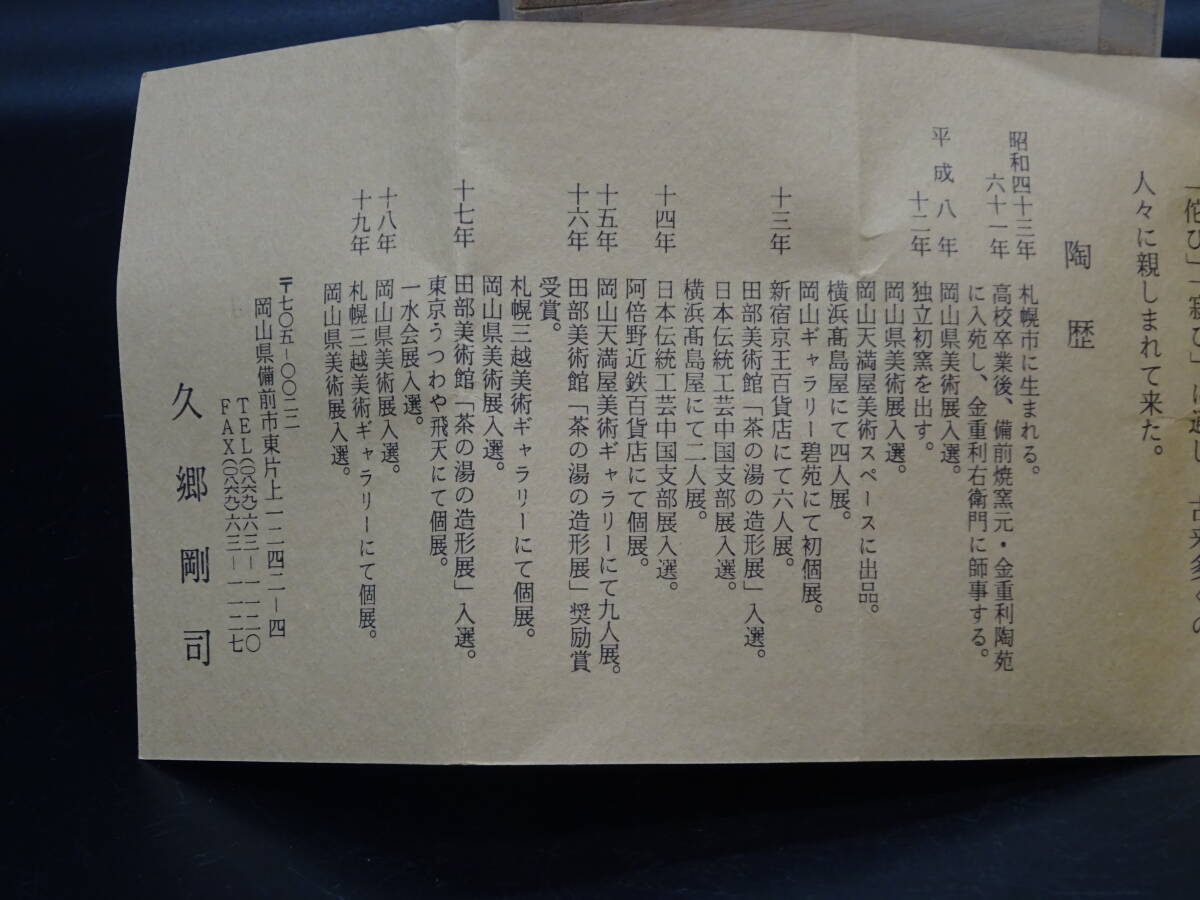 人々に親しまれて来た。
陶歴
昭和四十三年 札幌市に生まれる。
六十一年 高校卒業後、備前焼窯元・金重利陶苑
に入苑し、金重利右衛門に師事する。
平成八年 岡山県美術展入選。
十二年 独立初窯を出す。
岡山県美術展入選。
岡山天満屋美術スペースに出品。
横浜髙島屋にて四人展。
岡山ギャラリー碧苑にて初個展。
十三年 新宿京王百貨店にて六人展。
田部美術館「茶の湯の造形展」入選。
日本伝統工芸中国支部展入選。
横浜髙島屋にて二人展。
十四年 日本伝統工芸中国支部展入選。
阿倍野近鉄百貨店にて個展。
十五年 岡山天満屋美術ギャラリーにて九人展。
十六年 田部美術館「茶の湯の造形展」奨励賞
受賞。
札幌三越美術ギャラリーにて個展。
岡山県美術展入選。
十七年 田部美術館「茶の湯の造形展」入選。
東京うつわや飛天にて個展。
一水会展入選。
十八年 岡山県美術展入選。
十九年 札幌三越美術ギャラリーにて個展。
岡山県美術展入選。
〒七〇五−〇〇二二
岡山県備前市東片上一二四二−四
TEL(〇八六九)六三−一一二〇
FAX(〇八六九)六三−一一二七
久郷剛司